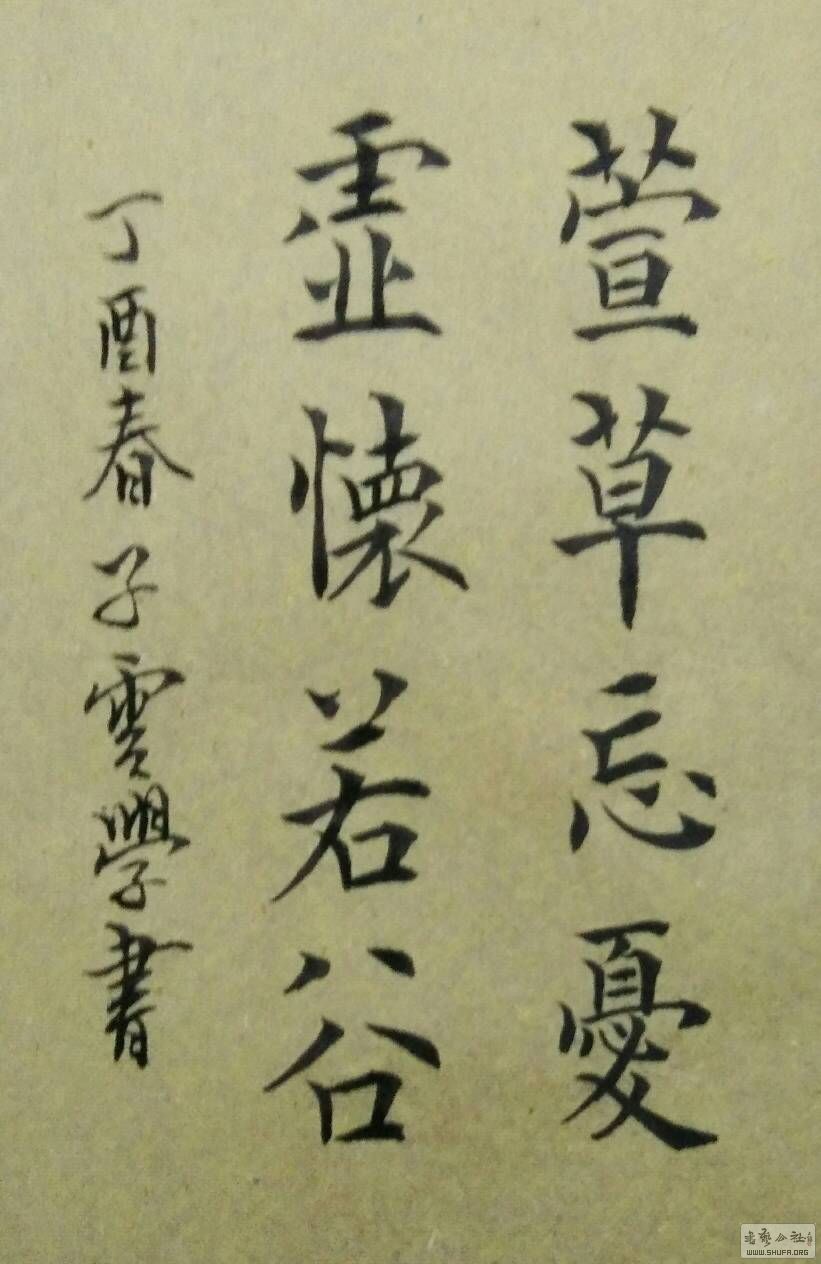 萱草忘憂
虛懷若谷
丁酉春子雲學書
WWW.SHUFA.ORG